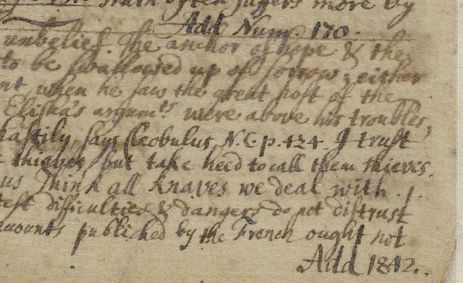 often suffers more by
Add Num. 170.
unbelief. The anchor of hope & the
to be swallowed up of sorrow; either
when he saw the great host of the
Elisha's argumts. were above his troubles,
hastily, says Cleobulus, N.C. p. 424. I trust
thieves but take heed to call them thieves.
us think all knaves we deal with!
difficulties & dangers do not distrust
amounts published by the French ought not
Add 1842..